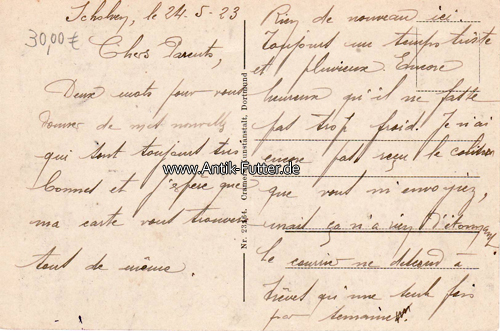 le 24-5-23
30,00€
Chers Parents,
Deux mots pour vous
donner de mes nouvelles
qui sont toujours très
bonnes et j'espère que
ma carte vous trouvera
tout de même.
www.Antik-Futter.de
Nr. 23 Cramers Kunstanstalt, Dortmund
Rien de nouveau ici.
Toujours un temps triste
et pluvieux. Encore
heureux qu'il ne fatte
pas trop froid. Je n'ai
encore pas reçu le
que vous m'envoyiez,
mais ça n'a rien d'étonnant
le courrier ne
qu'une seule fois
par semaine